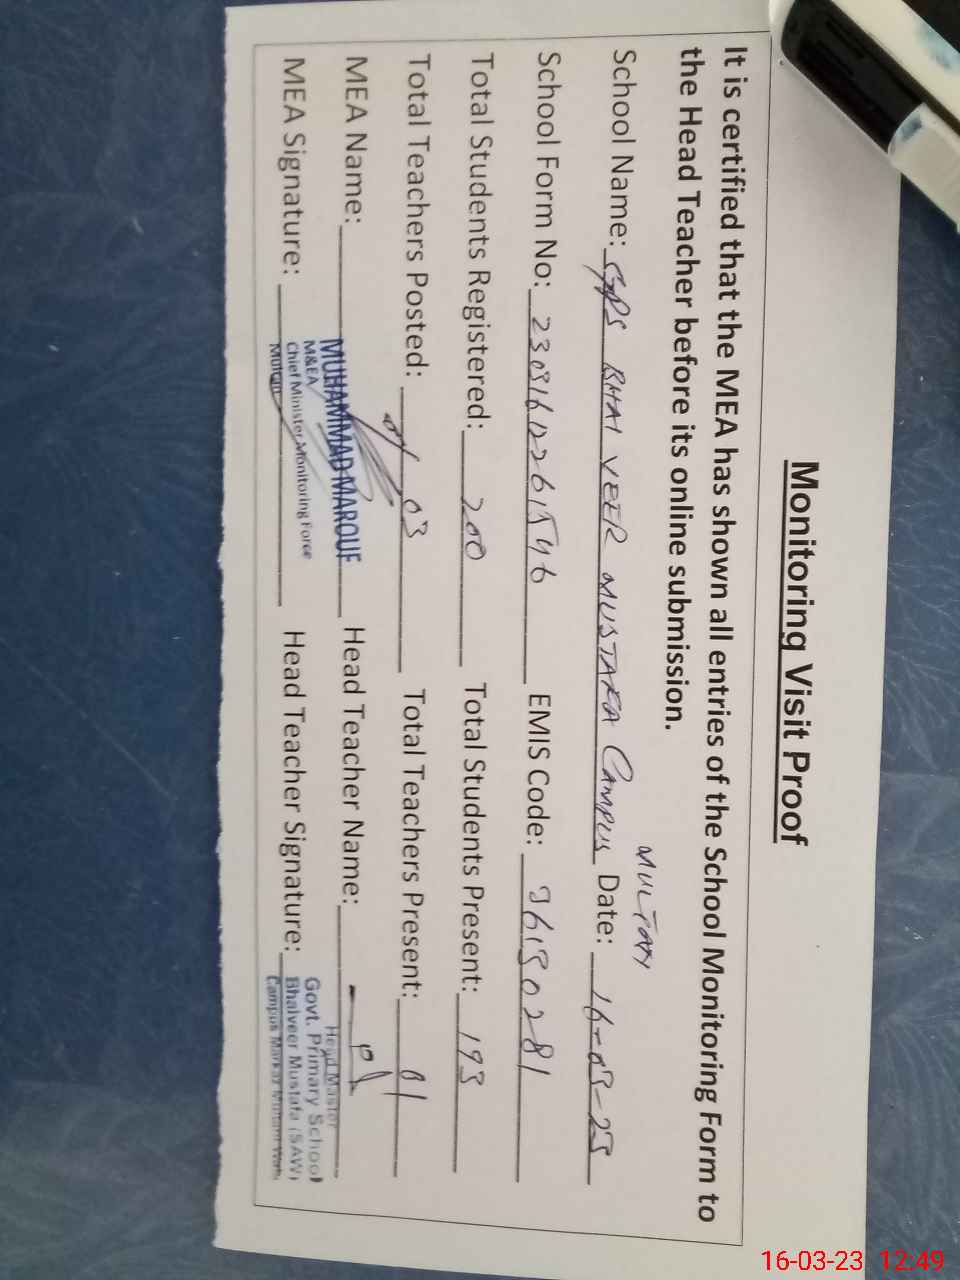 Monitoring Visit Proof
It is certified that the MEA has shown all entries of the School Monitoring Form to
the Head Teacher before its online submission.
MULTAN
School Name: GPS BHAI VEER MUSTAFA CAMPUS Date: 16-03-23
School Form No: EMIS Code:
Total Students Registered: 200 Total Students Present: 193
Total Teachers Posted: 03 Total Teachers Present: 01
MEA Name: MUHAMMAD MAROUF Head Teacher Name:
MEA Signature: M&EA Head Teacher Signature: Head Master
Chief Minister Monitoring Force Govt. Primary School
Multan Bhaiveer Mustafa (SAW)
Campus Markaz
16-03-23 12:49